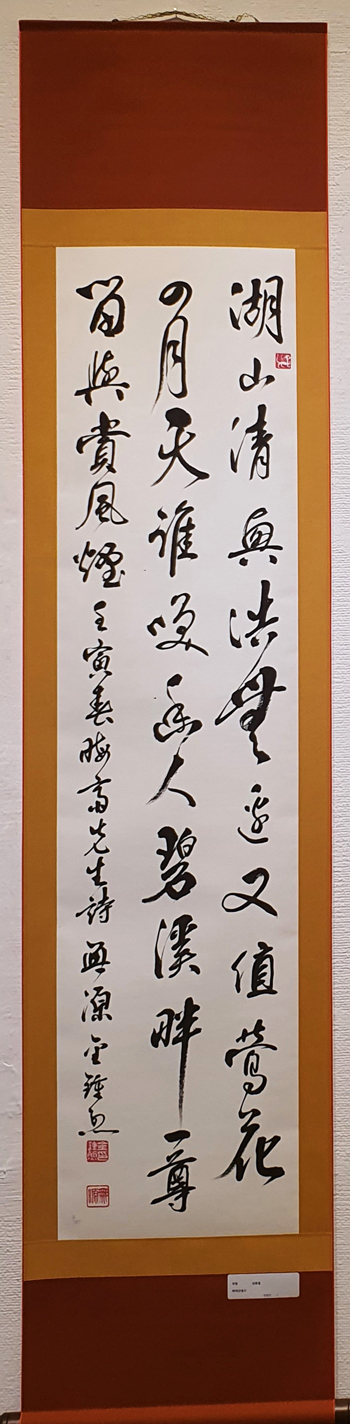 湖山清興浩無邊又值鶯花
四月天誰喚幽人碧溪畔一尊
留與賞風煙壬寅春晦齋先生詩 源金鍾